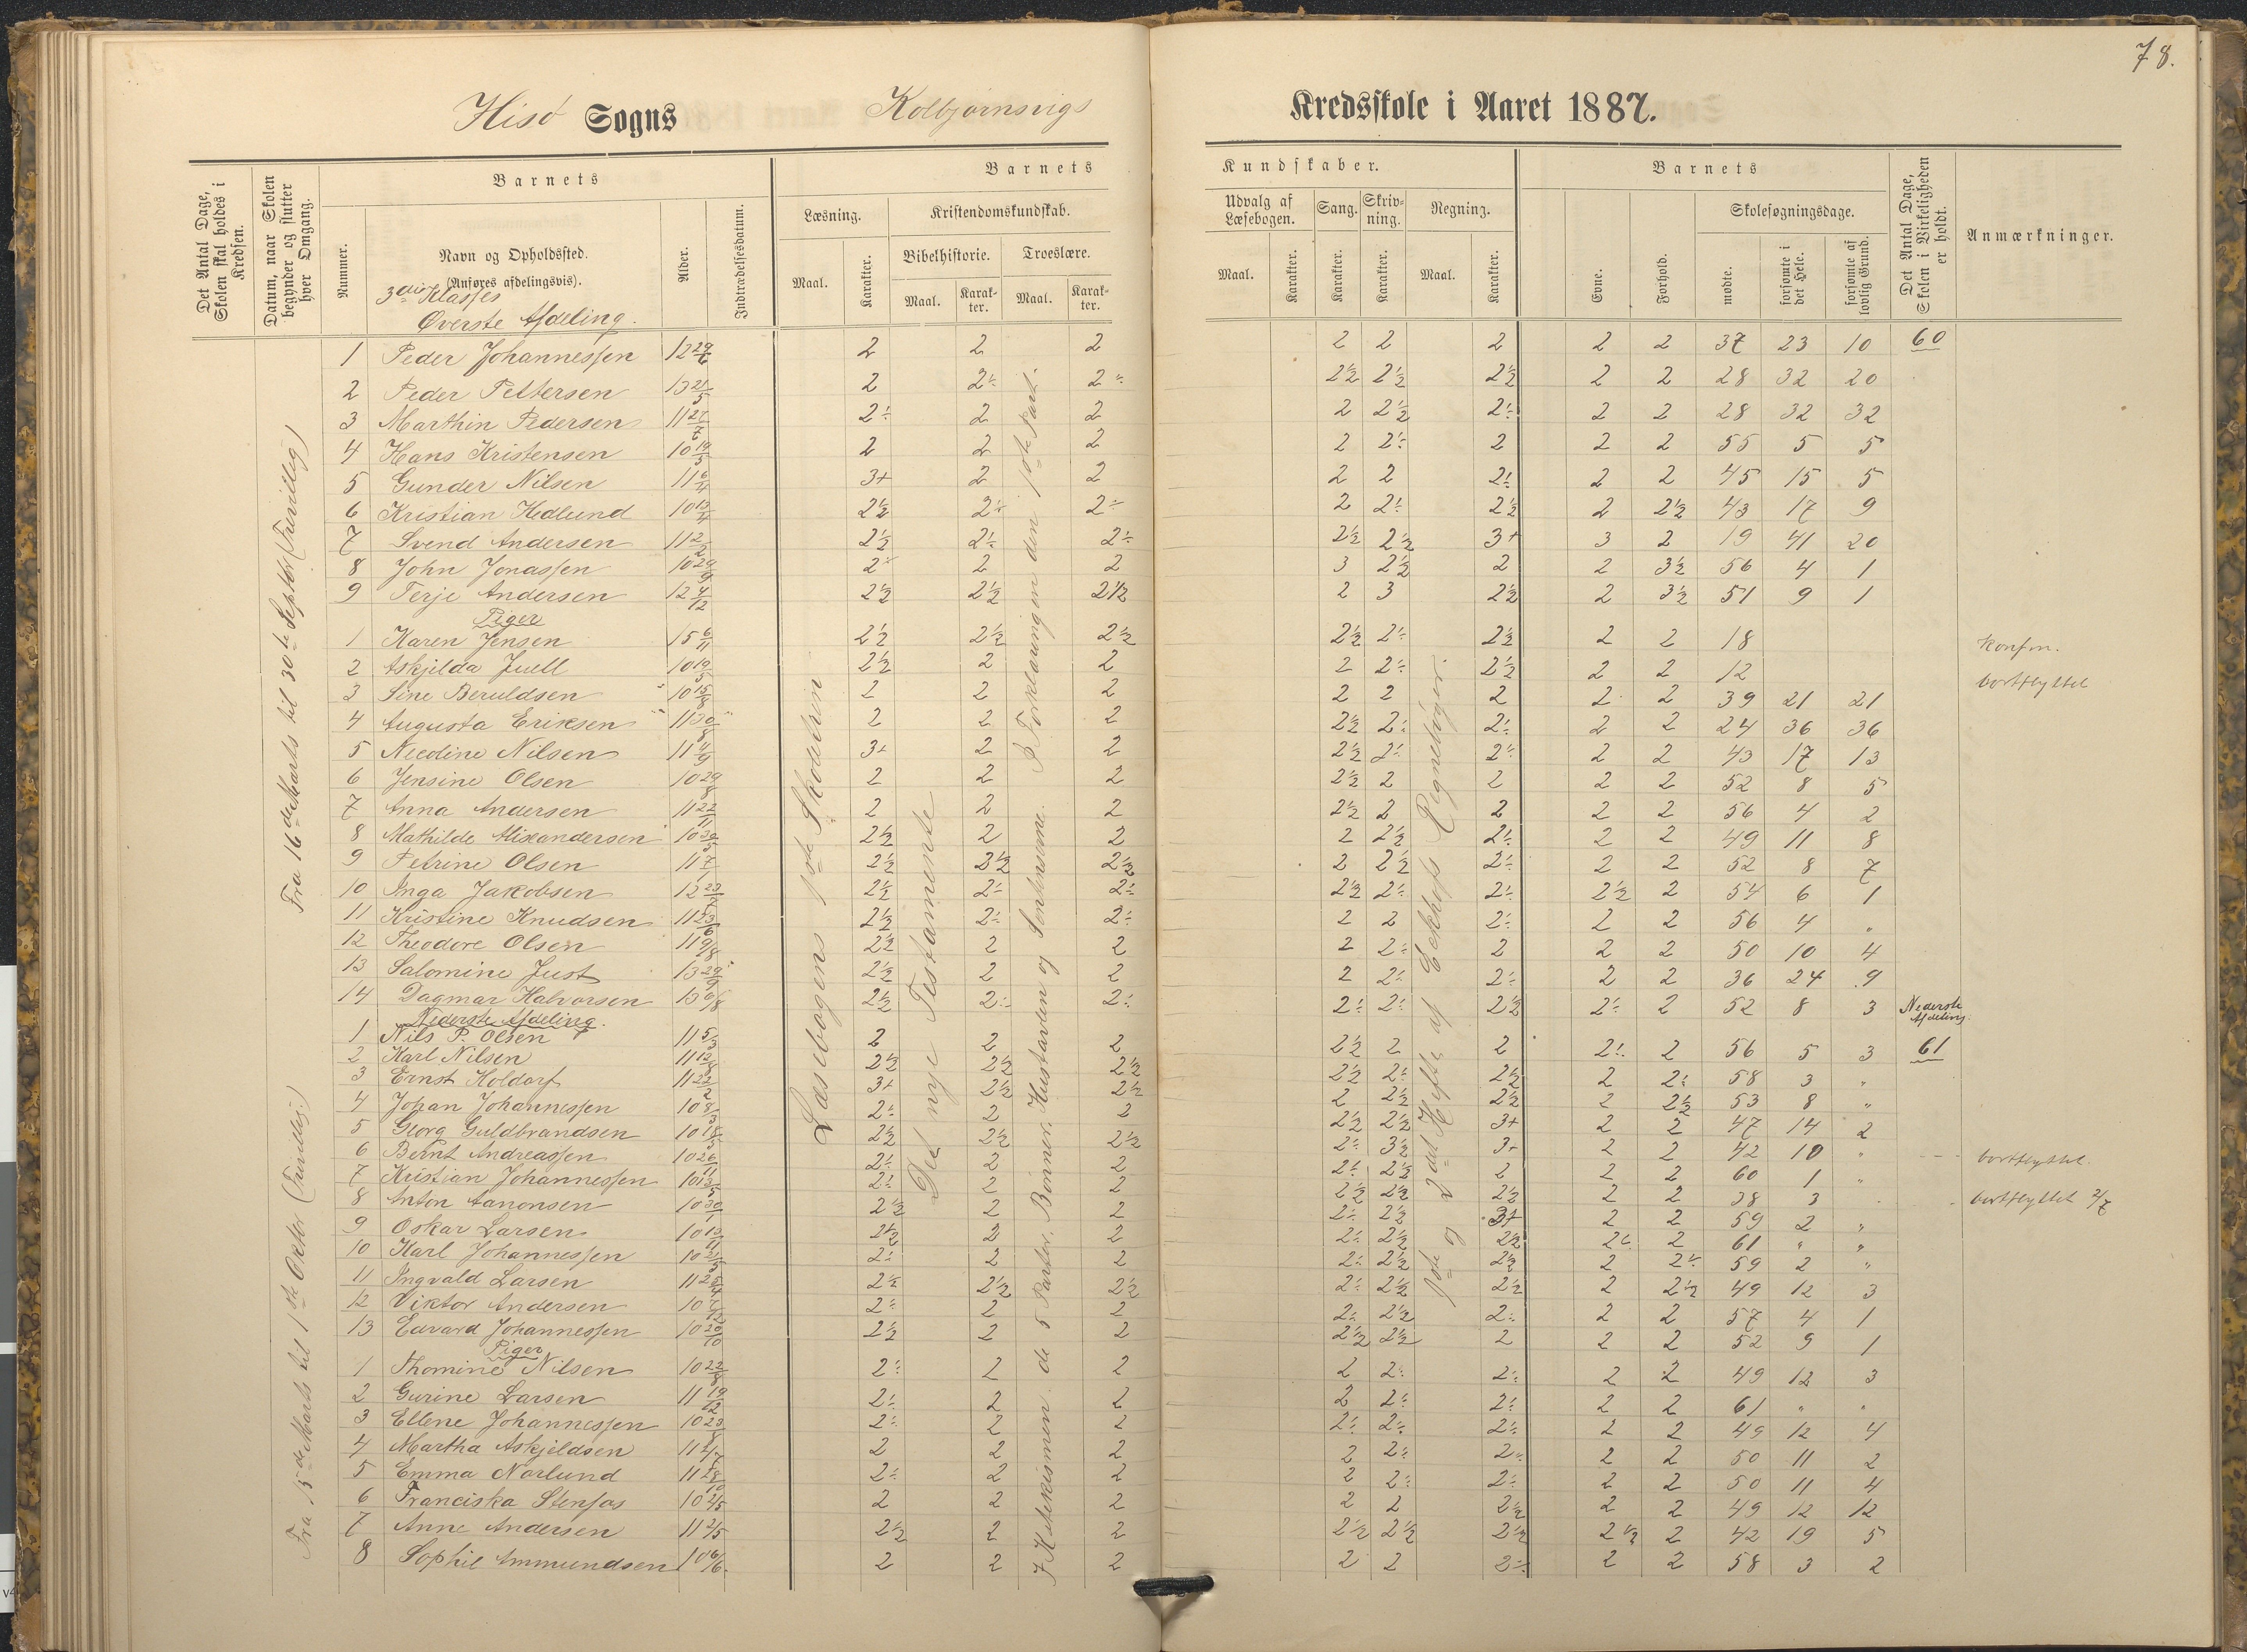 78.
Hisø Sogns Kolbjørnsvigs Kredsskole i Aaret 1887.
Det Antal Dage, Skolen skal holdes i Kredsen.
Datum, naar Skolen begynder og slutter hver Omgang.
Barnets
Nummer.
Navn og Opholdssted.
(Anføres afdelingsvis).
Alder.
Indtrædelsesdatum.
Barnets Kundskaber.
Læsning.
Maal. Karakter.
Kristendomskundskab.
Bibelhistorie. Troeslære.
Maal. Karakter. Maal. Karakter.
Udvalg af Læsebogen.
Maal. Karakter.
Sang. Karakter.
Skrivning. Karakter.
Regning.
Maal. Karakter.
Barnets
Evne. Forhold.
Skolesøgningsdage.
mødte. forsømte i det Hele. forsømte af lovlig Grund.
Det Antal Dage, Skolen i Virkeligheden er holdt.
Anmærkninger.
3die Klasses
Øverste Afdeling.
Fra 16de Marts til 30te Septbr (Frivillig)
Fra 15de Marts til 1ste Octbr (Frivillig)
Læsebogens 1ste Skoletrin
Det nye Testamente
I Katekismen de 5 Parter, Bønner, Hustavlen og Sentenserne. I Forklaringen den 1ste Part.
1ste og 2det Hefte af Eckhofs Regnebøger.
1 Peder Johannessen 12 29/6 2 2 2 2 2 2 2 2 37 23 10 60
2 Peder Pettersen 13 21/5 2 2÷ 2÷ 2½ 2½ 2½ 2 2 28 32 20
3 Marthin Pedersen 11 27/7 2÷ 2 2 2 2½ 2÷ 2 2 28 32 32
4 Hans Kristensen 10 19/5 2 2 2 2 2÷ 2 2 2 55 5 5
5 Gunder Nilsen 11 6/4 3+ 2 2 2 2 2÷ 2 2 45 15 5
6 Kristian Hedlund 10 13/4 2½ 2÷ 2÷ 2 2÷ 2½ 2 2½ 43 17 9
7 Svend Andersen 11 2/2 2½ 2÷ 2÷ 2½ 2½ 3+ 3 2 19 41 20
8 John Jonassen 10 29/9 2÷ 2 2 3 2½ 2 2 3½ 56 4 1
9 Terje Andersen 12 4/12 2½ 2½ 2½ 2 3 2½ 2 3½ 51 9 1
Piger
1 Karen Jensen 15 6/11 2½ 2½ 2½ 2½ 2÷ 2½ 2 2 18 konfm.
2 Askjilda Juell 10 19/5 2½ 2 2 2 2÷ 2½ 2 2 12 bortflyttet
3 Sine Beruldsen 10 15/8 2 2 2 2 2 2 2 2 39 21 21
4 Augusta Eriksen 11 30/8 2 2 2 2½ 2÷ 2÷ 2 2 24 36 36
5 Nicoline Nilsen 11 4/9 3+ 2 2 2½ 2÷ 2÷ 2 2 43 17 13
6 Jensine Olsen 10 29/8 2 2 2 2½ 2 2 2 2 52 8 5
7 Anna Andersen 11 22/11 2 2 2 2½ 2 2 2 2 56 4 2
8 Mathilde Alixandersen 10 30/5 2½ 2 2 2 2½ 2÷ 2 2 49 11 8
9 Petrine Olsen 11 7/1 2½ 2½ 2½ 2 2½ 2÷ 2 2 52 8 7
10 Inga Jakobsen 12 23/5 2½ 2÷ 2÷ 2½ 2÷ 2÷ 2½ 2 54 6 1
11 Kristine Knudsen 11 23/6 2½ 2÷ 2÷ 2 2 2÷ 2 2 56 4 "
12 Theodore Olsen 11 9/8 2½ 2 2 2 2÷ 2 2 2 50 10 4
13 Salomine Just 13 29/9 2½ 2 2 2 2÷ 2÷ 2 2 36 24 9
14 Dagmar Halvorsen 13 6/8 2½ 2÷ 2÷ 2÷ 2÷ 2½ 2÷ 2 52 8 3 Nederste Afdeling.
Nederste Afdeling.
1 Nils P. Olsen 11 5/3 2 2 2 2½ 2 2 2÷ 2 56 5 3 61
2 Karl Nilsen 11 12/8 2½ 2½ 2½ 2½ 2÷ 2½ 2 2÷ 58 3 "
3 Ernst Holdorf 11 22/2 3+ 2½ 2½ 2 2½ 2½ 2 2½ 53 8 "
4 Johan Johannessen 10 8/3 2÷ 2 2 2½ 2½ 3+ 2 2 47 14 2
5 Georg Guldbrandsen 10 18/5 2½ 2½ 2½ 2÷ 3½ 3+ 2 2 42 10 " bortflyttet.
6 Bernt Andreassen 10 26/11 2÷ 2 2 2÷ 2½ 2 2 2 60 1 "
7 Kristian Johannessen 10 13/5 2÷ 2 2 2½ 2½ 2½ 2 2 38 3 bortflyttet 2/7
8 Anton Aanonsen 10 30/1 2½ 2 2 2÷ 2½ 3+ 2 2 59 2 "
9 Oskar Larsen 10 13/11 2½ 2 2 2÷ 2½ 2½ 2÷ 2 61 " "
10 Karl Johannessen 10 21/5 2÷ 2 2 2÷ 2½ 2½ 2 2÷ 59 2 "
11 Ingvald Larsen 11 25/4 2½ 2½ 2½ 2÷ 2½ 2½ 2 2½ 49 12 3
12 Viktor Andersen 10 2÷ 2 2 2÷ 2½ 2÷ 2 2 57 4 1
13 Edvard Johannessen 10 20/10 2½ 2 2 2½ 2½ 2 2 2 52 9 1
Piger
1 Thomine Nilsen 10 22/8 2÷ 2 2 2 2÷ 2÷ 2 2 49 12 3
2 Gurine Larsen 11 19/12 2÷ 2 2 2 2÷ 2÷ 2 2 61 " "
3 Ellene Johannessen 10 23/8 2÷ 2 2 2÷ 2÷ 2÷ 2 2 49 12 4
4 Martha Askjeldsen 11 2/7 2 2 2 2 2÷ 2÷ 2 2 50 11 2
5 Emma Norlund 11 28/10 2÷ 2 2 2 2÷ 2÷ 2 2 50 11 4
6 Franciska Stenfos 10 2/5 2 2 2 2 2 2½ 2 2 49 12 12
7 Anne Andersen 11 2/5 2½ 2 2 2½ 2½ 2½ 2½ 2 42 19 5
8 Sophie Ammundsen 10 6/6 2 2 2 2 2 2÷ 2 2 58 3 2